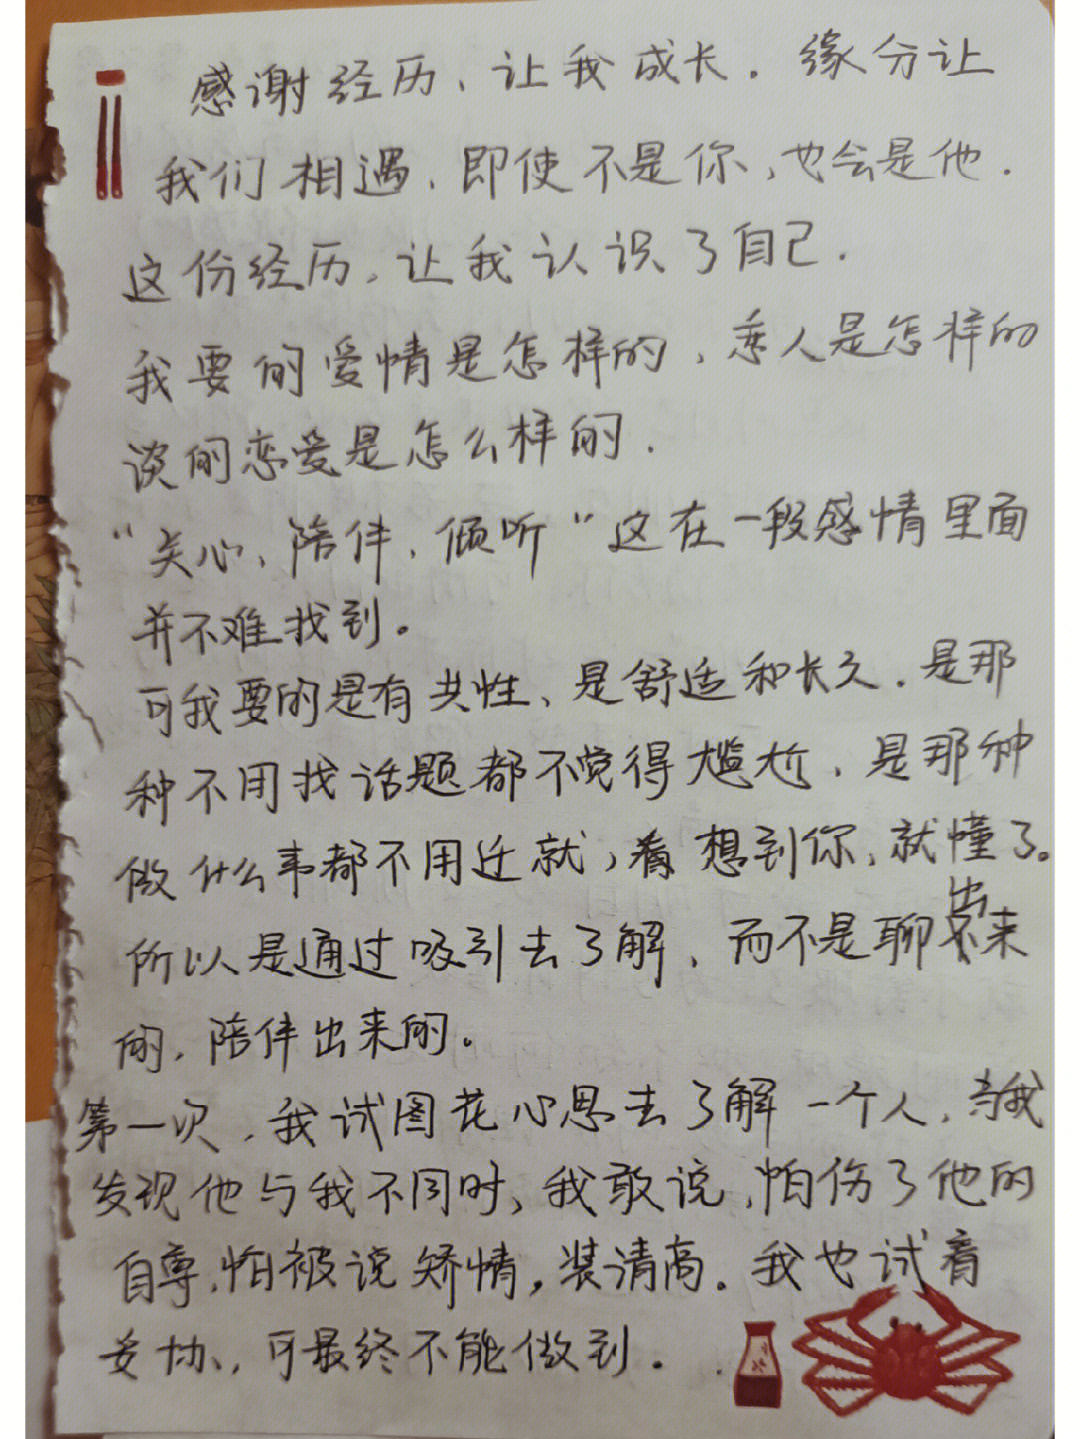 感谢经历、让我成长. 缘分让
我们相遇、即使不是你、也会是他.
这份经历,让我认识了自己.
我要的爱情是怎样的、恋人是怎样的
谈的恋爱是怎么样的.
“关心、陪伴、倾听”这在一段感情里面
并不难找到。
可我要的是有共性、是舒适和长久.是那
种不用找话题都不觉得尴尬、是那种
做什么事都不用迁就,看想到你,就懂了。
所以是通过吸引去了解、而不是聊出来
的,陪伴出来的。
第一次,我试图花心思去了解一个人,当我
发现他与我不同时,我敢说,怕伤了他的
自尊,怕被说矫情,装清高。我也试着
妥协、可最终不能做到。